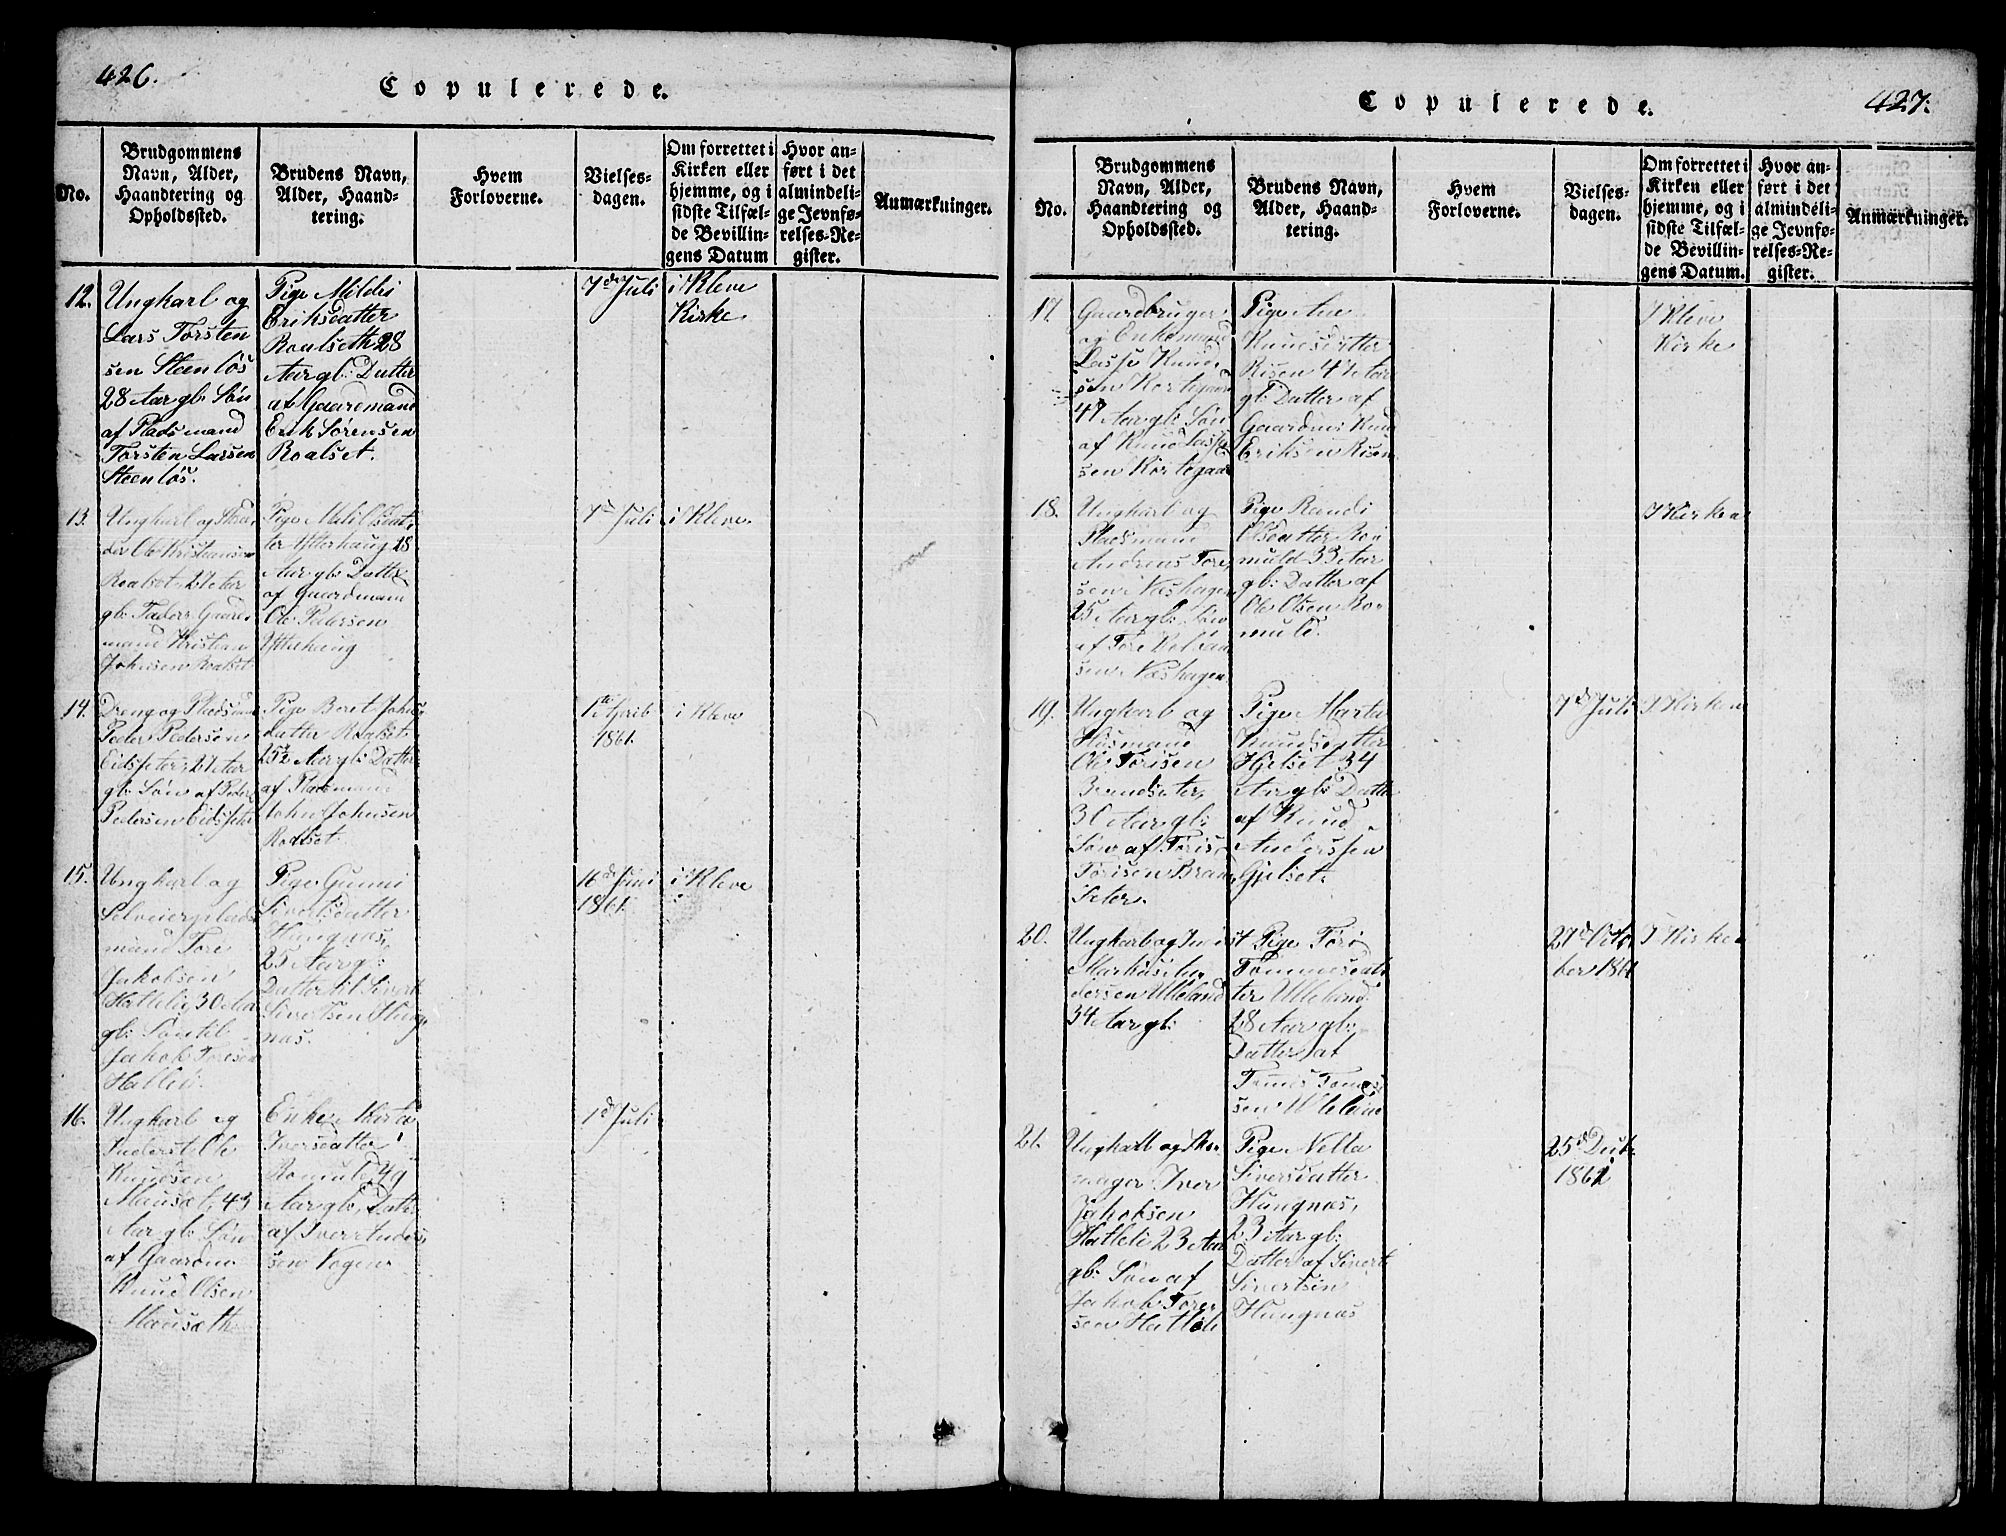 426.
Copulerede.
No.
Brudgommens
Navn, Alder,
Haandtering og
Opholdssted.
Brudens Navn,
Alder, Haand-
tering.
Hvem
Forloverne.
Vielses-
dagen.
Om forrettet i
Kirken eller
hjemme, og i
sidste Tilfæl-
de Bevillin-
gens Datum
Hvor an-
ført i det
almindeli-
ge Jevnfø-
relses-Re-
gister.
Anmærkninger.
12.
Ungkarl og
Lars Torsten
sen Steenløs
28 Aar gb: Søn
af Pladsmand
Torsten Larsen
Steenløs.
Pige Mildri
Eriksdatter
Roalseth 28
Aar gb: Datter
af Gaardmand
Erik Sørensen
Roalset.
7de Juli
i Kleve
Kirke
13.
Ungkarl og
Ole Kristiansen
Roalset 27 Aar
gb: Faders Gaard
mand Kristian
Johnsen Roalset
Pige Mali Olsdat
ter Ytterhaug 28
Aar gb: Datter
af Gaardmand
Ole Pedersen
Ytterhaug
7de Juli
i Kleve
14.
Dreng og Pladsmand
Peder Pedersen
Eidssæter 27 Aar
gb: Søn af Peder
Pedersen Eidssæter
Pige Beret Johns
datter Roalset
25½ Aar gb: Datter
af Pladsmand
John Johnsen
Roalset
1te April
1861.
i Kleve
15.
Ungkarl og
Selveierplads
mand Tore
Jakobsen
Hatleli 30 Aar
gb: Søn til
Jakob Toresen
Hatleli.
Pige Gunni
Sivertsdatter
Hungnæs,
25 Aar gb:
Datter til Sivert
Sivertsen Hung
næs.
16de Juni
1861.
i Kleve
16.
Ungkarl og
Ole
Knudsen
Mausæt, 43
Aar gb: Søn
af Gaardm
Knud Olsen
Mausæth
Enke Marta
Iversdatter
Romuld 49
Aar gb: Datter
af Iver Anders
sen Vogen
1d Juli
427.
Copulerede.
No.
Brudgommens
Navn, Alder,
Haandtering og
Opholdssted.
Brudens Navn,
Alder, Haand-
tering.
Hvem
Forloverne.
Vielses-
dagen.
Om forrettet i
Kirken eller
hjemme, og i
sidste Tilfæl-
de Bevillin-
gens Datum.
Hvor an-
ført i det
almindeli-
ge Jevnfø-
relses-Re-
gister.
Anmærkninger.
17.
Gaardbruger
og Enkemand
Lasse Knud
sen Kortgaard
47 Aar gb: Søn
af Knud Lasse
sen Kortgaard
Pige Ane
Knudsdatter
Risen 41 Aar
gb: Datter af
Gaardm Knud
Eriksen Risen
I Kleve
Kirke
18.
Ungkarl og
Pladsmand
Andreas Tore
sen Næshagen
25 Aar gb: Søn
af Tore
sen Næshagen
Pige Randi
Olsdatter Ro
muld 33 Aar
gb: Datter af
Ole Olsen Ro
muld.
I Kirken
19.
Ungkarl og
Husmand
Ole Torisen
Brandsæter,
30 Aar gb:
Søn af Toris
Torisen Brand
sæter.
Pige Marta
Knudsdatter
Hjelset 34
Aar gb: Datter
af Knud
Anderssen
Gjelset.
7de Juli
I Kirken
20.
Ungkarl og Inderst
Markus An
dersen Ulleland
34 Aar gb:
Pige Tørø
Tommesdat
ter Ulleland
28 Aar gb:
Datter af
Tomes Tomes
sen Ulleland
27d Octo
ber 1861
I Kirken
21.
Ungkarl og Sko
mager Iver
Jakobsen
Hatleli 23 Aar
gb: Søn af
Jakob Tore
sen Hatleli
Pige Nella
Siversdatter
Hungnæs,
23 Aar gb:
Datter af Sivert
Sivertsen
Hungnæs
25d Decbr
1861